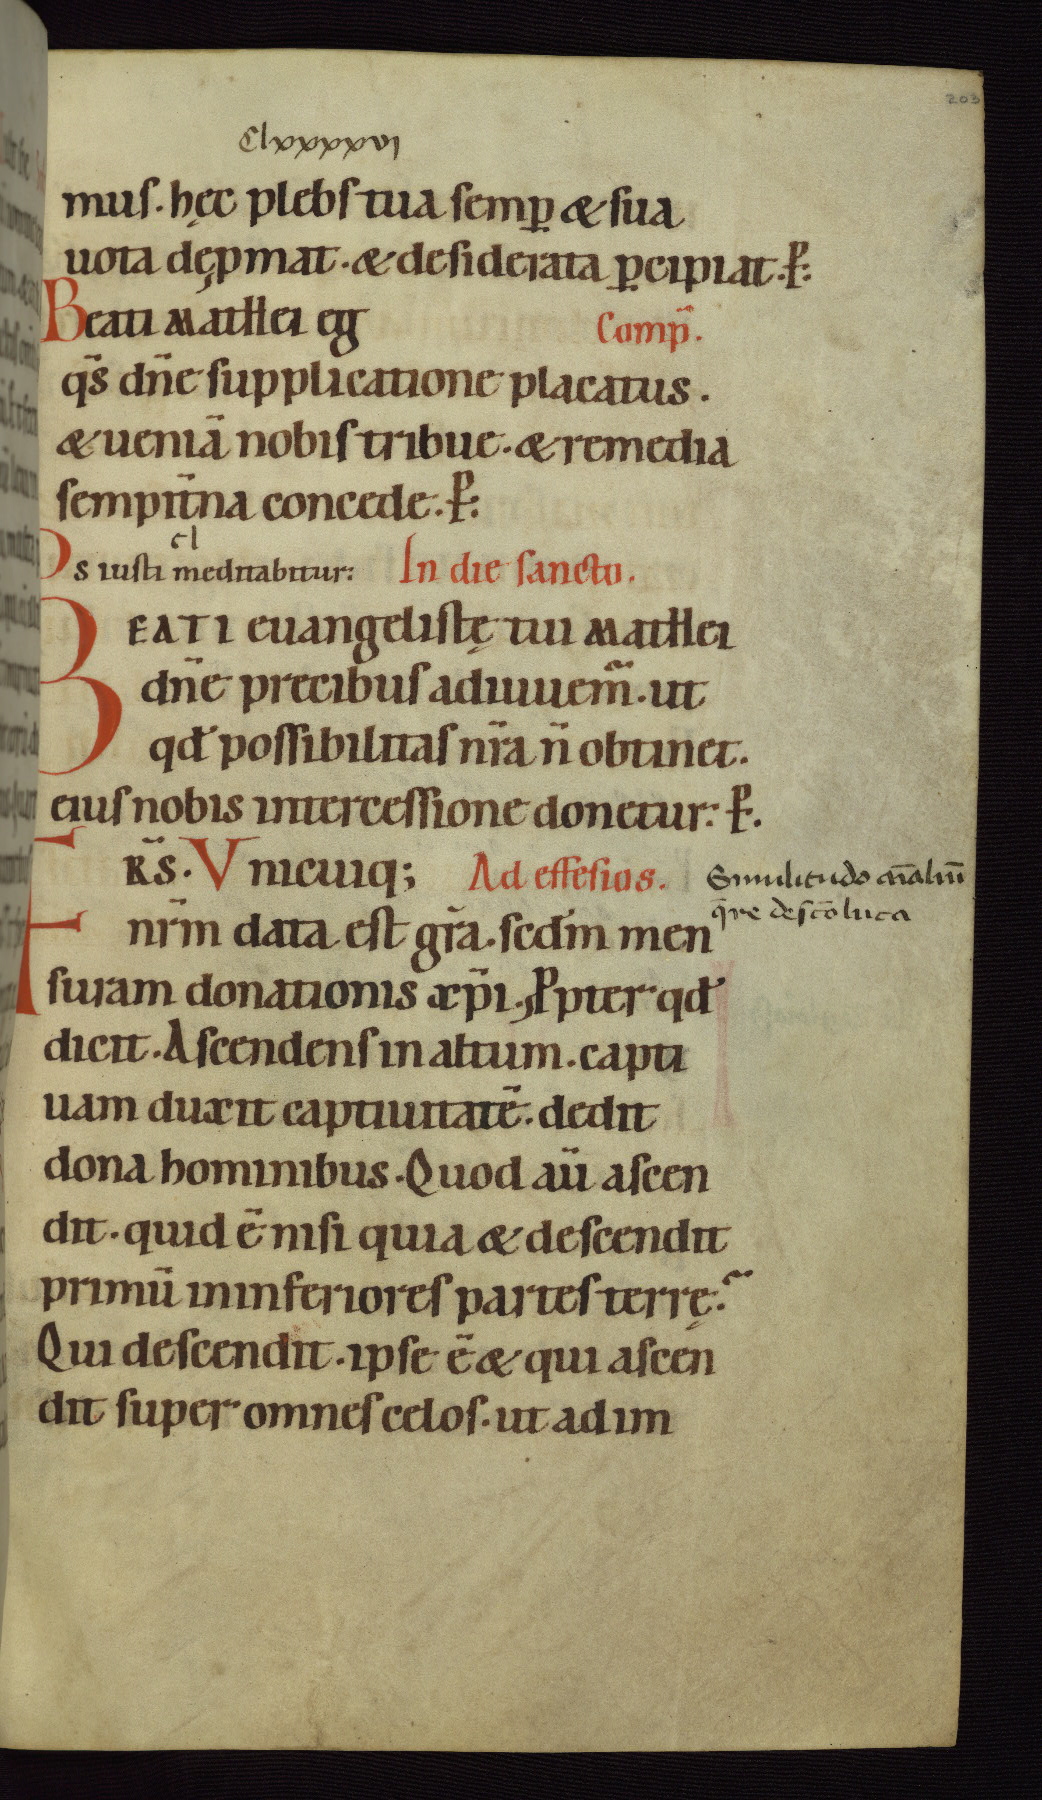 203
Clxxxxvi
muſ. hęc plebſ tua ſemꝑ & ſua
uota dep̱mat. & deſiderata ꝑcipiat. P̱:
Beati Mathei eg Comp̄.
qs̄ dn̄e ſupplicatione placatus.
& ueniā nobiſ tribue. & remedia
ſempit̄na concede. P̱:
cl
Os iuſti meditabitur: In die ſancto.
BEATI euangeliſtę tui Mathei
dn̄e precibuſ adiuuem̄. ut
qđ poſſibilitaſ nr̄a n̄ obtinet.
eiuſ nobis interceſſione donetur: P̱.
FRS̄. Vnicuiq; Ad effeſios.
Similitudo
nr̄m data eſt gr̄a. ſcđm men
q̄re de sc̄o luca
ſuram donationis xp̄i. Ꝓpter qđ
dicit. Aſcendenſ in altum. capti
uam duxit captiuitatē. dedit
dona hominibus. Quod aū aſcen
dit. quid ē niſi quia & deſcendit
primū in inferioreſ parteſ terrę.
Qui deſcendit. ipſe ē & qui aſcen
dit ſuper omneſ celoſ. ut adim